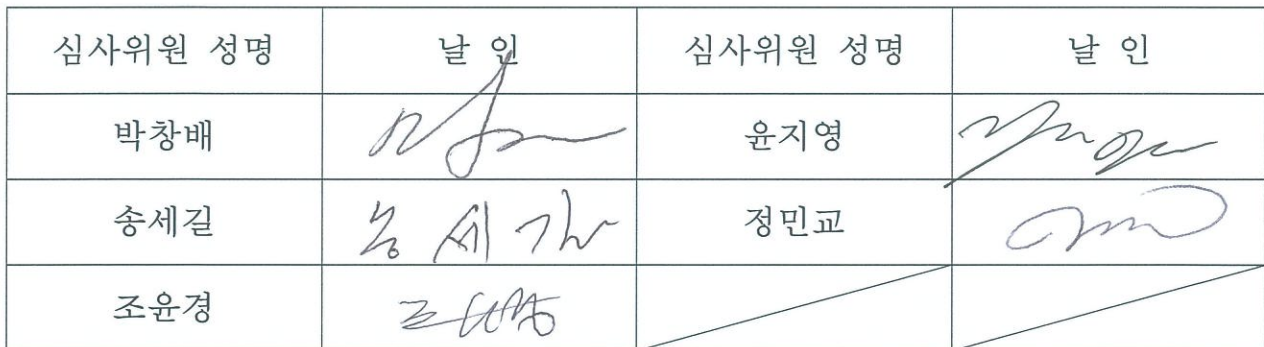 심사위원 성명 날 인 심사위원 성명 날 인
박창배 윤지영
송세길 송세길 정민교
조윤경